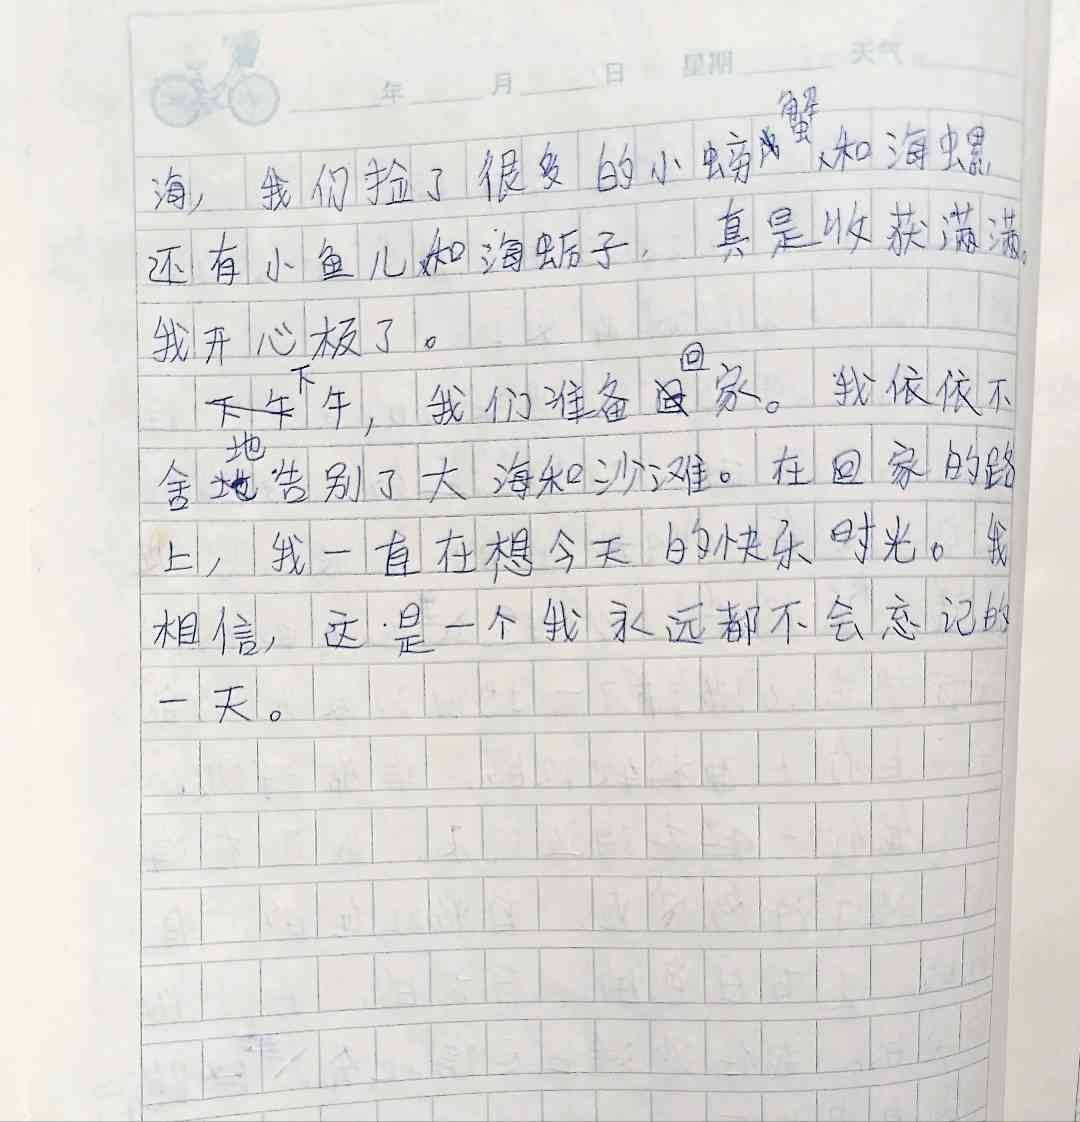 年 月 日 星期 天气
海，我们捡了很多的小螃蟹和海螺
还有小鱼儿和海蛎子，真是收获满满。
我开心极了。
下午，我们准备回家。我依依不
舍地告别了大海和沙滩。在回家的路
上，我一直在想今天的快乐时光。我
相信，这是一个我永远都不会忘记的
一天。